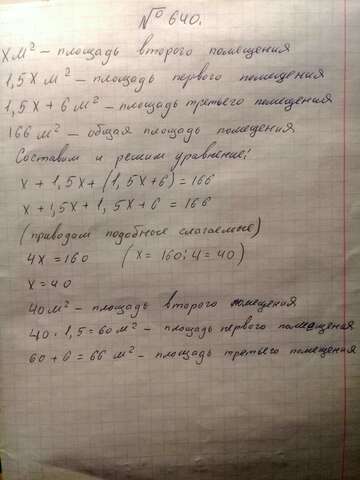 № 640.
x м² – площадь второго помещения
1,5x м² – площадь первого помещения
1,5x + 6 м² – площадь третьего помещения
166 м² – общая площадь помещения
Составим и решим уравнение:
x + 1,5x + (1,5x + 6) = 166
x + 1,5x + 1,5x + 6 = 166
(приводим подобные слагаемые)
4x = 160 (x = 160 : 4 = 40)
x = 40
40 м² – площадь второго помещения
40 · 1,5 = 60 м² – площадь первого помещения
60 + 6 = 66 м² – площадь третьего помещения